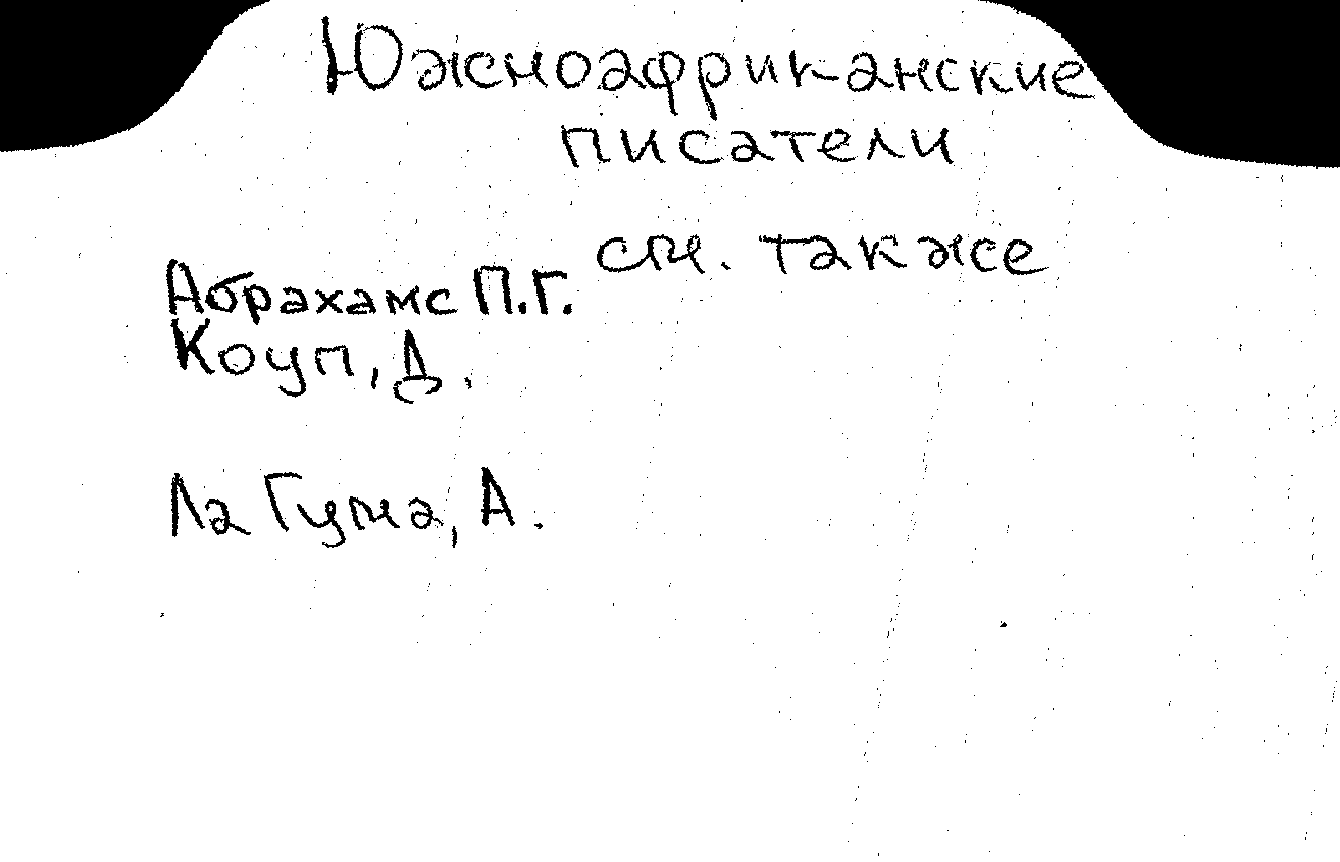 Южноафриканские
писатели
см. также
Абрахамс П.Г.
Коуп, Д.
Ла Гума, А.